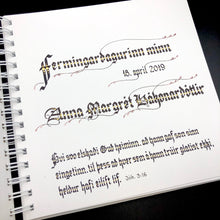 Fermingardagurinn minn
18. apríl 2019
Anna Margrét Hákonardóttir
Því svo elskaði Guð heiminn, að hann gaf son sinn
eingetinn, til þess að hver sem á hann trúir glatist ekki
heldur hafi eilíft líf. Jóh. 3:16